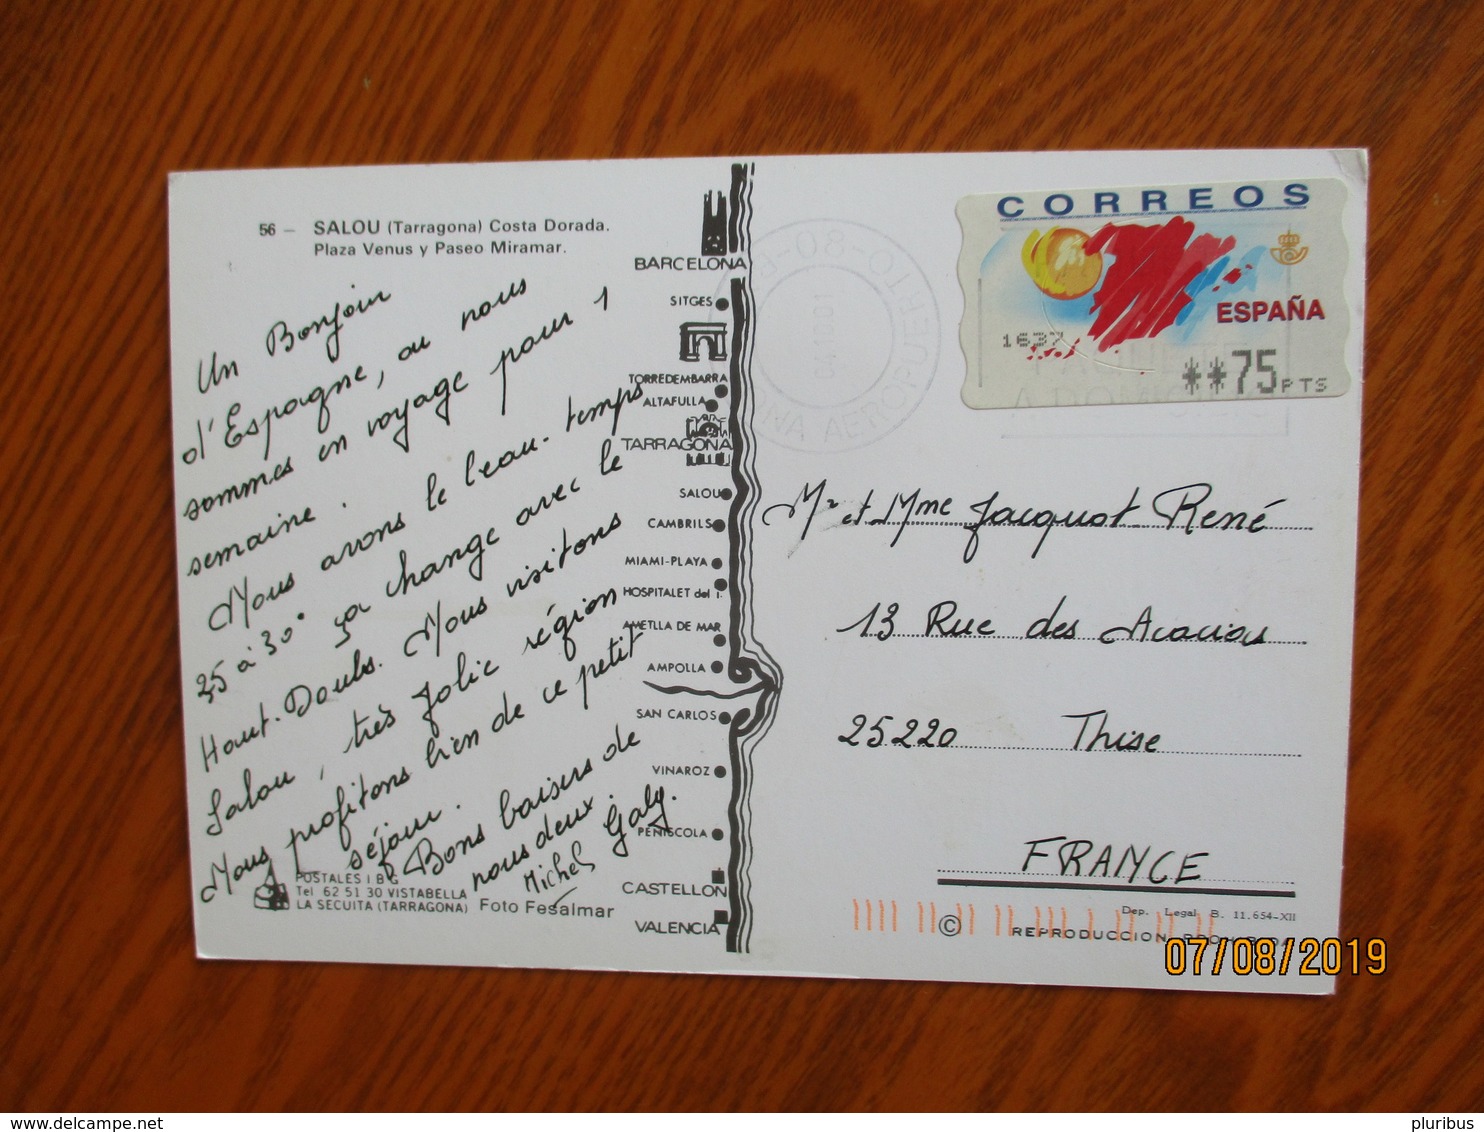 56 – SALOU (Tarragona) Costa Dorada.
Plaza Venus y Paseo Miramar.
Un Bonjour
d'Espagne, où nous
sommes en voyage pour 1
semaine.
Nous avons le beau-temps
25 à 30° ça change avec le
Haut-Doubs. Nous visitons
Salou, très jolie région
Nous profitons bien de ce petit
séjour.
Bons baisers de
nous deux.
Michel Galy.
POSTALES I B G
Tel 62 51 30 VISTABELLA
LA SECUITA (TARRAGONA)
Foto Fesalmar
BARCELONA
SITGES
TORREDEMBARRA
ALTAFULLA
TARRAGONA
SALOU
CAMBRILS
MIAMI-PLAYA
HOSPITALET del I.
AMETLLA DE MAR
AMPOLLA
SAN CARLOS
VINAROZ
PEÑISCOLA
CASTELLON
VALENCIA
CORREOS
ESPAÑA
1637
**75 PTS
Mr et Mme Jacquot René
13 Rue des Acacias
25220 Thise
FRANCE
Dep. Legal B. 11.654-XII
© REPRODUCCION PROHIBIDA
07/08/2019
pluribus